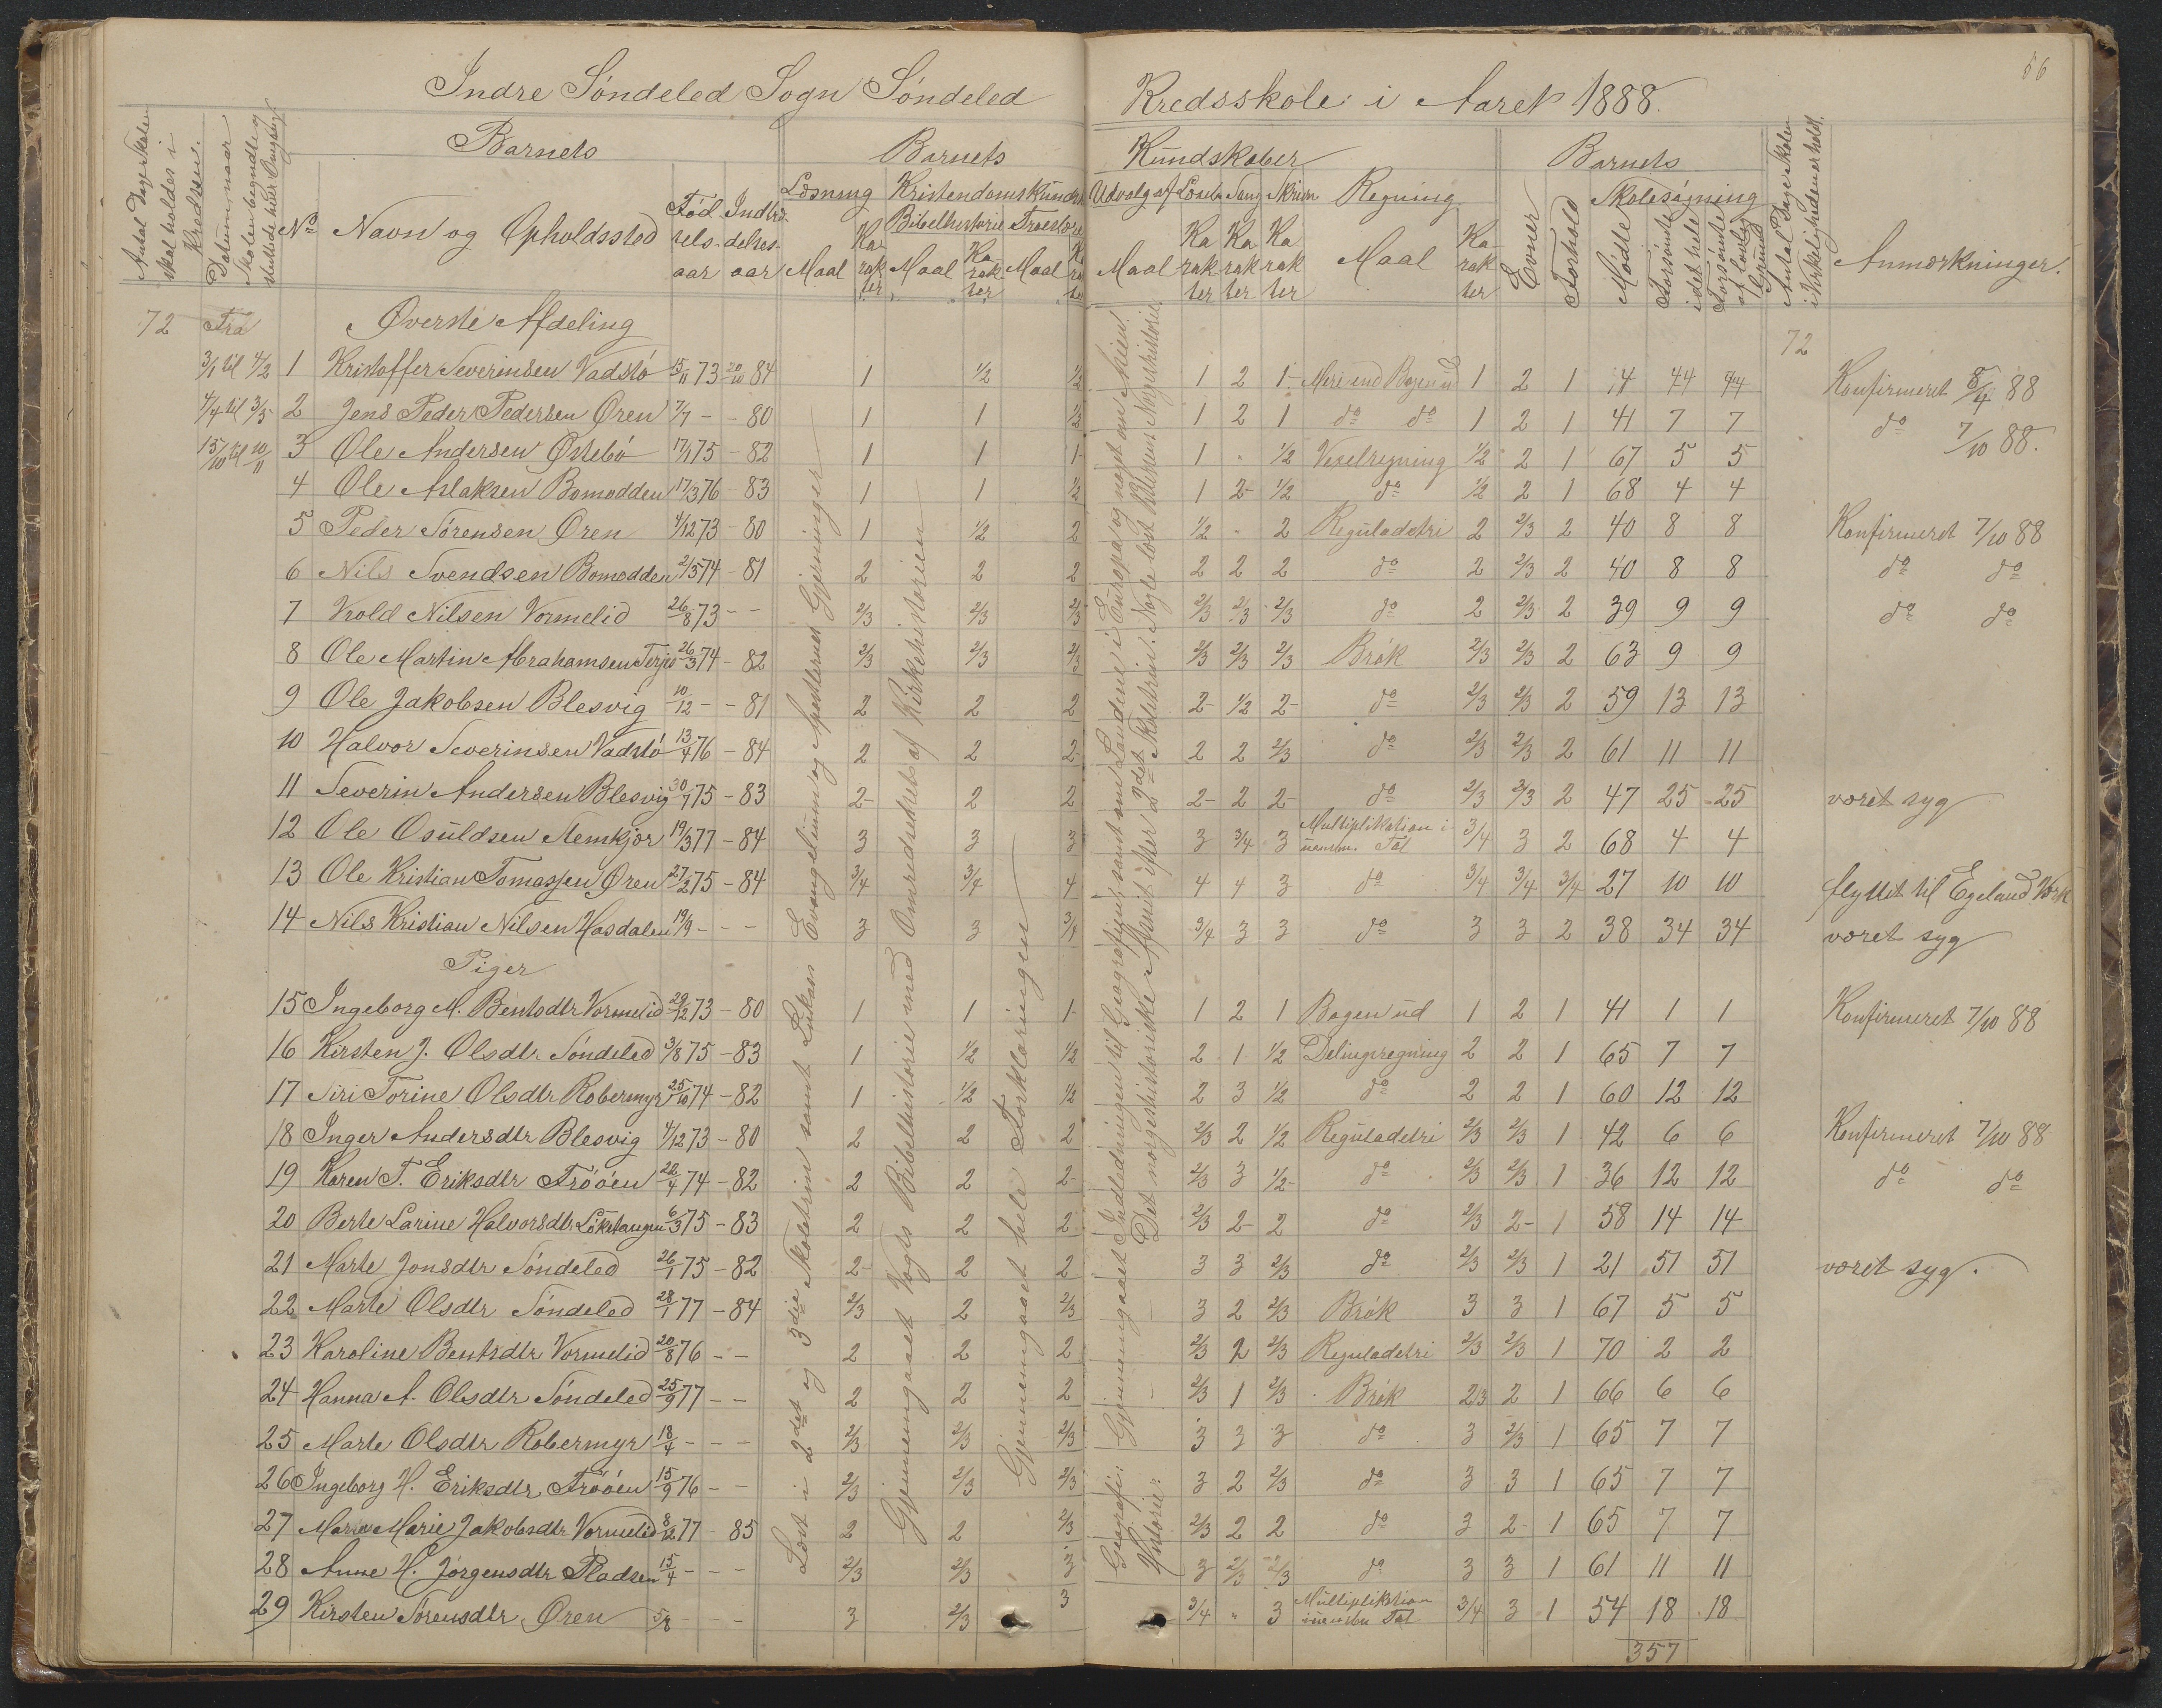 56
Indre Söndeled Sogn Söndeled Kredsskole i Aaret 1888.
Antal Dage Skolen skal holdes i Kredsen.
Datum naar Skolen begyndte og sluttede hver Omgang
Barnets
Barnets Kundskaber
Barnets
No Navn og Opholdssted
Födselsaar
Indtrædelsesaar
Læsning Maal Karakter
Kristendomskundskab
Bibelhistorie Maal Karakter
Troeslære Maal Karakter
Udvalg af Læseb. Maal Karakter
Sang Karakter
Skrivn. Karakter
Regning Maal Karakter
Evner
Forhold
Skolesögning
Mödte
Forsömte i det hele
Forsömte af lovlig Grund
Antal Dage Skolen i Virkeligheden er holdt.
Anmærkninger.
72 Fra Øverste Afdeling 72
3/1 til 4/2 1 Kristoffer Severinsen Vadstö 15/11 73 20/10 84 1 1/2 1/2 1 2 1 Mere end Bogen ud 1 2 1 14 44 44 Konfirmeret 8/4 88
4/4 til 3/5 2 Jens Peder Pedersen Øren 7/7 - - 80 1 1 1/2 1 2 1 do do 1 2 1 41 7 7 do 7/10 88.
15/10 til 10/11 3 Ole Andersen Østebö 17/1 75 - 82 1 1 1 1 " 1/2 Vexelregning 1/2 2 1 67 5 5
4 Ole Aslaksen Bomodden 17/3 76 - 83 1 1 1/2 1 2- 1/2 do 1/2 2 1 68 4 4
5 Peder Sörensen Øren 4/12 73 - 80 1 1/2 2 1/2 " 2 Reguladetri 2 2/3 2 40 8 8 Konfirmeret 7/10 88
6 Nils Svendsen Bomodden 2/5 74 - 81 2 2 2 2 2 2 do 2 2/3 2 40 8 8 do do
7 Vrold Nilsen Vormelid 26/8 73 - - 2/3 2/3 2/3 2/3 2/3 2/3 do 2 2/3 2 39 9 9 do do
8 Ole Martin Abrahamsen Terjes 26/3 74 - 82 2/3 2/3 2/3 2/3 2/3 2/3 Brök 2/3 2/3 2 63 9 9
9 Ole Jakobsen Blesvig 10/12 - - 81 2 2 2 2- 1/2 2- do 2/3 2/3 2 59 13 13
10 Halvor Severinsen Vadstö 13/4 76 - 84 2 2 2- 2 2 2/3 do 2/3 2/3 2 61 11 11
11 Severin Andersen Blesvig 30/7 75 - 83 2- 2 2 2- 2 2- do 2/3 2/3 2 47 25 25 været syg
12 Ole Osuldsen Stemkjær 19/3 77 - 84 3 3 3 3 3/4 3 Multiplikation i uensbn. Tal 3/4 3 2 68 4 4
13 Ole Kristian Tomassen Øren 27/2 75 - 84 3/4 3/4 4 4 4 3 do 3/4 3/4 3/4 27 10 10 flyttet til Egeland Værk
14 Nils Kristian Nilsen Hasdalen 19/9 - - - 3 3 3/4 3/4 3 3 do 3 3 2 38 34 34 været syg
Piger
15 Ingeborg M. Bentsdtr Vormelid 29/12 73 - 80 1 1 1 1 2 1 Bogen ud 1 2 1 41 1 1 Konfirmeret 7/10 88
16 Kirsten J. Olsdtr Söndeled 3/8 75 - 83 1 1/2 1/2 2 1 1/2 Delingsregning 2 2 1 65 7 7
17 Siri Torine Olsdtr Robermyr 25/10 74 - 82 1 1/2 1/2 2 3 1/2 do 2 2 1 60 12 12
18 Inger Andersdtr Blesvig 4/12 73 - 80 2 2 2 2/3 2 1/2 Reguladetri 2/3 2/3 1 42 6 6 Konfirmeret 7/10 88
19 Karen T. Eriksdtr Fröóen 22/4 74 - 82 2 2 2- 2/3 3 1/2- do 2/3 2/3 1 36 12 12 do do
20 Berte Larine Halvorsdtr Lökstangen 6/3 75 - 83 2 2 2 2/3 2- 2 do 2/3 2- 1 58 14 14
21 Marte Jonsdtr Söndeled 26/1 75 - 82 2- 2 2 3 3 2/3 do 2/3 2/3 1 21 51 51 været syg.
22 Marte Olsdtr Söndeled 28/1 77 - 84 2/3 2 2/3 3 2 2/3 Brök 3 3 1 67 5 5
23 Karoline Bentsdtr Vormelid 20/8 76 - - 2 2 2 2/3 2 2/3 Reguladetri 2/3 2/3 1 70 2 2
24 Hanna A. Olsdtr Söndeled 25/9 77 - - 2 2 2 2/3 1 2/3 Brök 2/3 2 1 66 6 6
25 Marte Olsdtr Robermyr 18/4 - - - 2/3 2/3 2/3 3 3 3 do 3 2/3 1 65 7 7
26 Ingeborg H. Eriksdtr Fröóen 15/9 76 - - 2/3 2/3 2/3 3 2 2/3 do 3 3 1 65 7 7
27 Maren Marie Jakobsdtr Vormelid 8/12 77 - 85 2 2 2/3 2/3 2 2 do 3 2- 1 65 7 7
28 Anne H. Jörgensdtr Pladsen 15/4 - - - 2/3 2/3 3 3 2/3 2/3 do 3 3 1 61 11 11
29 Kirsten Sörensdtr Øren 5/8 - - - 3 2/3 3 3/4 " 3 Multiplikation i uensbn Tal 3/4 3 1 54 18 18
357
Læst i 2det og 3die Skoletrin samt Lukas Evangelium og Apostlernes Gjerninger
Gjennemgaaet Vogts Bibelhistorie med Omridset af Kirkehistorien
Gjennemgaaet hele Forklaringen
Geografi: Gjennemgaaet Indledningen til Geografien, samt om Landene i Europa og noget om Asien.
Historie: Det norgeshistoriske Afsnit efter 2det Skoletrin. Nogle læst Petersens Norgeshistorie.